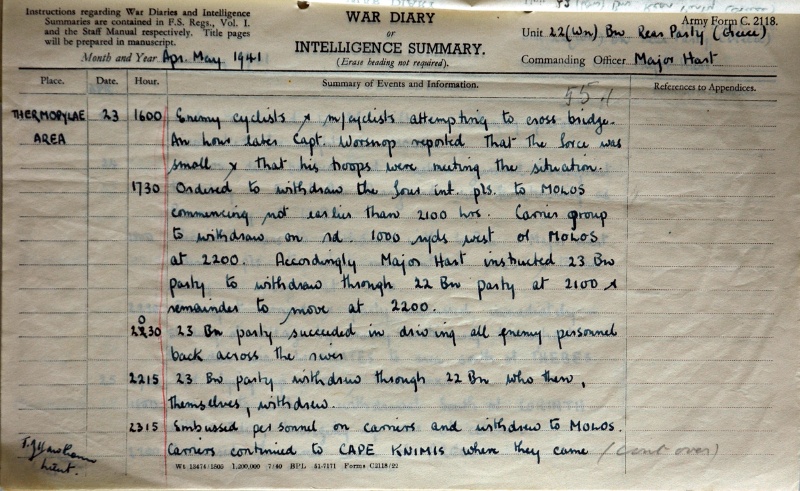 Instructions regarding War Diaries and Intelligence
Summaries are contained in F.S. Regs., Vol. I.
and the Staff Manual respectively. Title pages
will be prepared in manuscript.
Month and Year Apr. May 1941
WAR DIARY
or
INTELLIGENCE SUMMARY.
(Erase heading not required).
Army Form C. 2118.
Unit 22 (Wn) Bn Rear Party (Greece)
Commanding Officer Major Hart
Place. Date. Hour. Summary of Events and Information. References to Appendices.
THERMOPYLAE 23 1600 Enemy cyclists & m/cyclists attempting to cross bridge.
AREA An hour later Capt. Worsnop reported that the force was
small & that his troops were meeting the situation.
1730 Ordered to withdraw the four inf. pls. to MOLOS
commencing not earlier than 2100 hrs. Carrier group
to withdraw on rd. 1000 yds west of MOLOS
at 2200. Accordingly Major Hart instructed 23 Bn
party to withdraw through 22 Bn party at 2100 &
remainder to move at 2200.
2030 23 Bn party succeeded in driving all enemy personnel
back across the river
2215 23 Bn party withdrew through 22 Bn who then,
themselves, withdrew.
2315 Embussed personnel on carriers and withdrew to MOLOS.
Carriers continued to CAPE KNIMIS where they came (cont over)
Lieut.
Wt 13474/1805 1,200,000 7/40 BPL 51-7171 Forms C2118/22